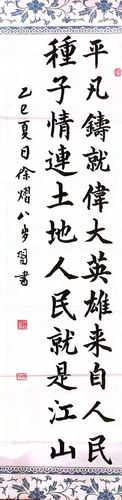 平凡鑄就偉大英雄来自人民
種子情連土地人民就是江山
乙巳夏日徐熠八岁習書